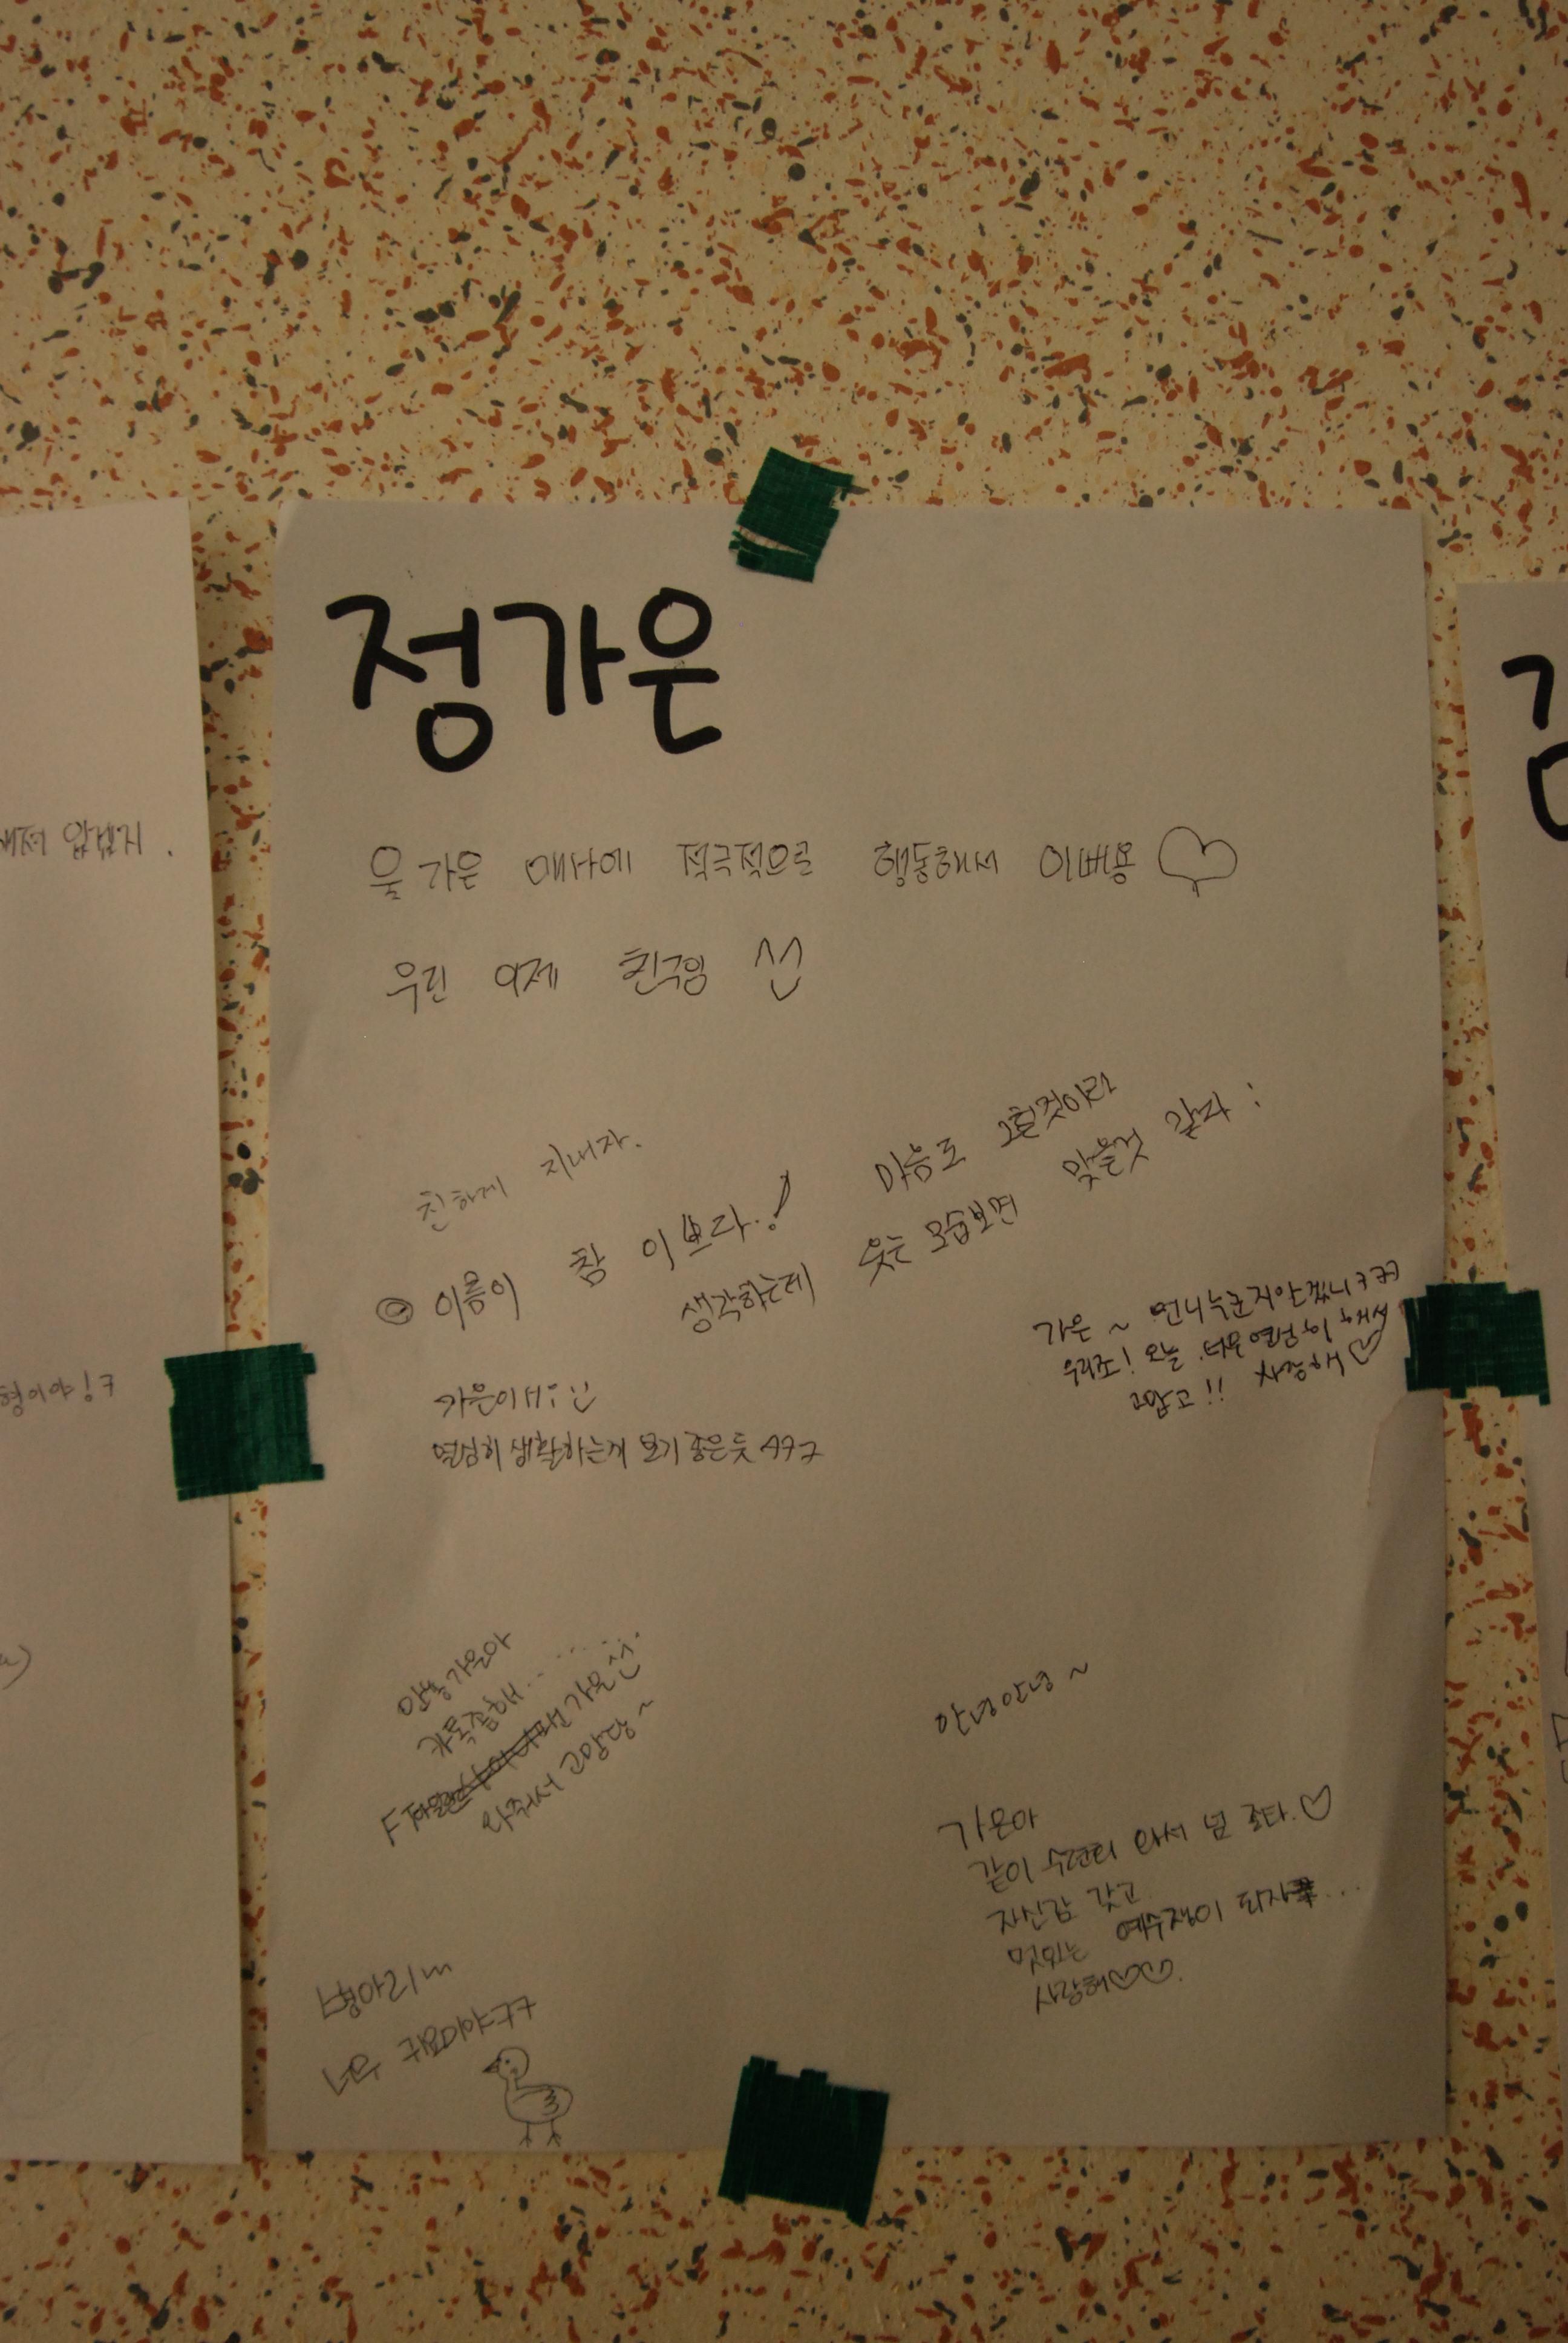 정가은
울 가은 매사에 적극적으로 행동해서 이뻐용
우린 이제 친구임
친하게 지내자.
이름이 참 이쁘다.! 마음도 그럴것이라
생각하는데 웃는 모습보면 맞을것 같다:
가은~ 언니누군지알겠니ㅋㅋㅋ
우리조! 오늘 너무 열심히 해서
고맙고!! 사랑해♡
가은이너:
열심히 생활하는게 보기 좋은듯 ㅋㅋ
안뇽 가은아
카톡좀해......
가은
와줘서 고맙당~
안녕안녕~
가은아
같이 수련회 와서 넘 조타.♡
자신감 갖고
멋있는 예수쟁이 되자...
사랑해♡♡.
병아리
너무 귀요미야ㅋㅋ
형이야!ㅋ